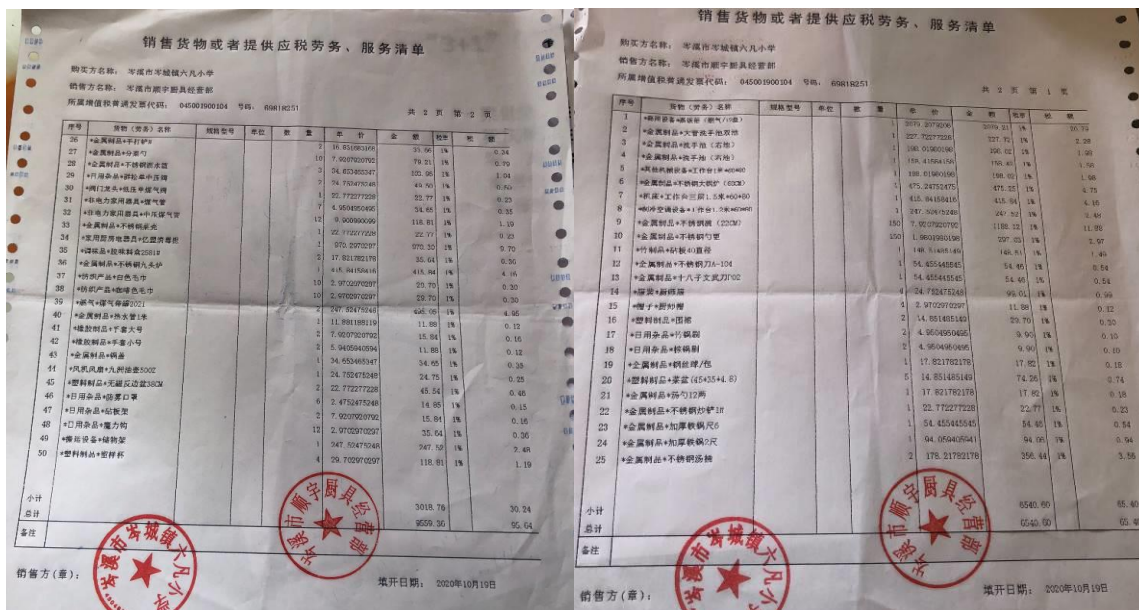 销售货物或者提供应税劳务、服务清单
购买方名称： 岑溪市岑城镇六凡小学
销售方名称： 岑溪市顺宇厨具经营部
所属增值税普通发票代码： 045001900104 号码： 69818251
共 2 页 第 2 页
序号 货物（劳务）名称 规格型号 单位 数 量 单 价 金 额 税率 税 额
26 *金属制品*手打铲# 2 16.831683168 33.66 1% 0.34
27 *金属制品*分菜勺 10 7.9207920792 79.21 1% 0.79
28 *金属制品*不锈钢 3 34.653465347 103.96 1% 1.04
29 *日用杂品* 2 24.752475248 49.50 1% 0.50
30 *阀门龙头*低压单煤气阀 1 22.772277228 22.77 1% 0.23
31 *非电力家用器具*煤气管 7 4.9504950495 34.65 1% 0.35
32 *非电力家用器具*中压煤气管 12 9.900990099 118.81 1% 1.19
33 *金属制品*不锈钢 1 22.772277228 22.77 1% 0.23
34 *家用厨房电器具*亿盟消毒柜 1 970.2970297 970.30 1% 9.70
35 *调味品* 2 17.821782178 35.64 1%
36 *金属制品*不锈钢九头炉 1 415.84158416 415.84 1% 4.16
37 *纺织产品*白色毛巾 10 2.9702970297 29.70 1% 0.30
38 *纺织产品*咖啡色毛巾 10 2.9702970297 29.70 1% 0.30
39 *燃气*煤气 2 247.52475248 495.05 1% 4.95
40 *金属制品*热水管1米 1 11.881188119 11.88 1% 0.12
41 *橡胶制品*手套大号 2 7.9207920792 15.84 1% 0.16
42 *橡胶制品*手套小号 2 5.9405940594 11.88 1% 0.12
43 *金属制品*锅盖 1 34.653465347 34.65 1% 0.35
44 *风机风扇*九洲 1 24.752475248 24.75 1% 0.25
45 *塑料制品*无磁反边盆38CM 2 22.772277228 45.54 1% 0.46
46 *日用杂品*防雾口罩 6 2.4752475248 14.85 1% 0.15
47 *日用杂品*砧板架 2 7.9207920792 15.84 1% 0.16
48 *日用杂品*魔力钩 12 2.9702970297 35.64 1% 0.36
49 *搬运设备*储物架 1 247.52475248 247.52 1% 2.48
50 *塑料制品*密样杯 4 29.702970297 118.81 1% 1.19
小计 3018.76 30.24
总计 9559.36 95.64
备注
岑溪市顺宇厨具经营部
岑溪市岑城镇六凡小学
销售方（章）： 填开日期： 2020年10月19日
销售货物或者提供应税劳务、服务清单
购买方名称： 岑溪市岑城镇六凡小学
销售方名称： 岑溪市顺宇厨具经营部
所属增值税普通发票代码： 045001900104 号码： 69818251
共 2 页 第 1 页
序号 货物（劳务）名称 规格型号 单位 数 量 单 价 金 额 税率 税 额
1 1 2079.2079206 2079.21 1% 20.79
2 *金属制品*大管洗手池双池 1 227.72277228 227.72 1% 2.28
3 *金属制品*洗手池（右池） 1 198.01980198 198.02 1% 1.98
4 *金属制品*洗手池（右池） 1 158.41584158 158.42 1% 1.58
5 *其他机械设备*工作台1米*60*80 1 198.01980198 198.02 1% 1.98
6 *金属制品*不锈钢大锅炉（60CM） 1 475.24752475 475.25 1% 4.75
7 *机床*工作台三层1.5米*60*80 1 415.84158416 415.84 1% 4.16
8 *制冷空调设备*工作台1.2米*60*80 1 247.52475248 247.52 1% 2.48
9 *金属制品*不锈钢碗（22CM） 150 7.9207920792 1188.12 1% 11.88
10 *金属制品*不锈钢勺更 150 1.9801980198 297.03 1% 2.97
11 *竹制品*砧板40直径 1 148.51485149 148.51 1% 1.49
12 *金属制品*不锈钢刀A-104 1 54.455445545 54.46 1% 0.54
13 *金属制品*十八子文武刀F02 1 54.455445545 54.46 1% 0.54
14 *服装*厨师服 4 24.752475248 99.01 1% 0.99
15 *帽子*厨师帽 4 2.9702970297 11.88 1% 0.12
16 *塑料制品*围裙 2 14.851485149 29.70 1% 0.30
17 *日用杂品*竹锅刷 2 4.9504950495 9.90 1% 0.10
18 *日用杂品*棕锅刷 2 4.9504950495 9.90 1% 0.10
19 *金属制品*钢丝球/包 1 17.821782178 17.82 1% 0.18
20 *塑料制品*菜盆(45*35*4.8) 5 14.851485149 74.26 1% 0.74
21 *金属制品*汤勺12两 1 17.821782178 17.82 1% 0.18
22 *金属制品*不锈钢炒铲1# 1 22.772277228 22.77 1% 0.23
23 *金属制品*加厚铁锅尺6 1 54.455445544 54.46 1% 0.54
24 *金属制品*加厚铁锅2尺 1 94.059405941 94.06 1% 0.94
25 *金属制品*不锈钢汤桶 2 178.21782178 356.44 1% 3.56
小计 6540.60 65.40
总计 6540.60 65.40
备注
岑溪市顺宇厨具经营部
岑溪市岑城镇六凡小学
销售方（章）： 填开日期： 2020年10月19日